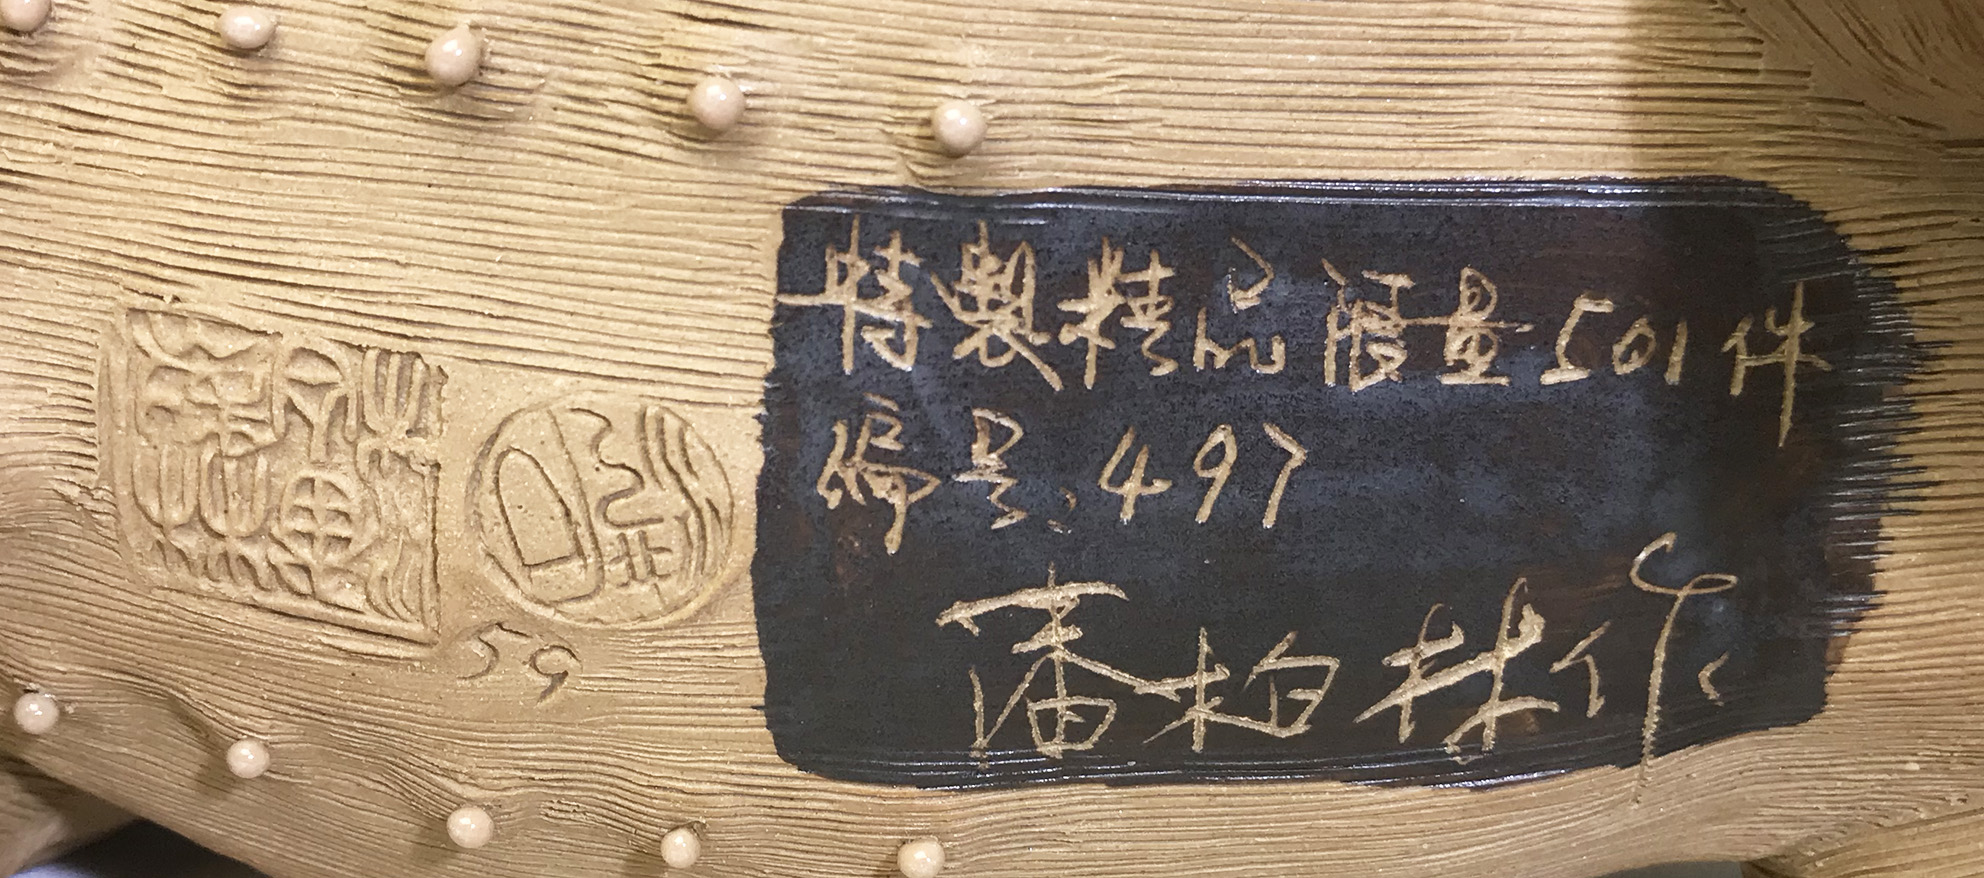 特製精品限量501件
編号:497
潘柏林作
59